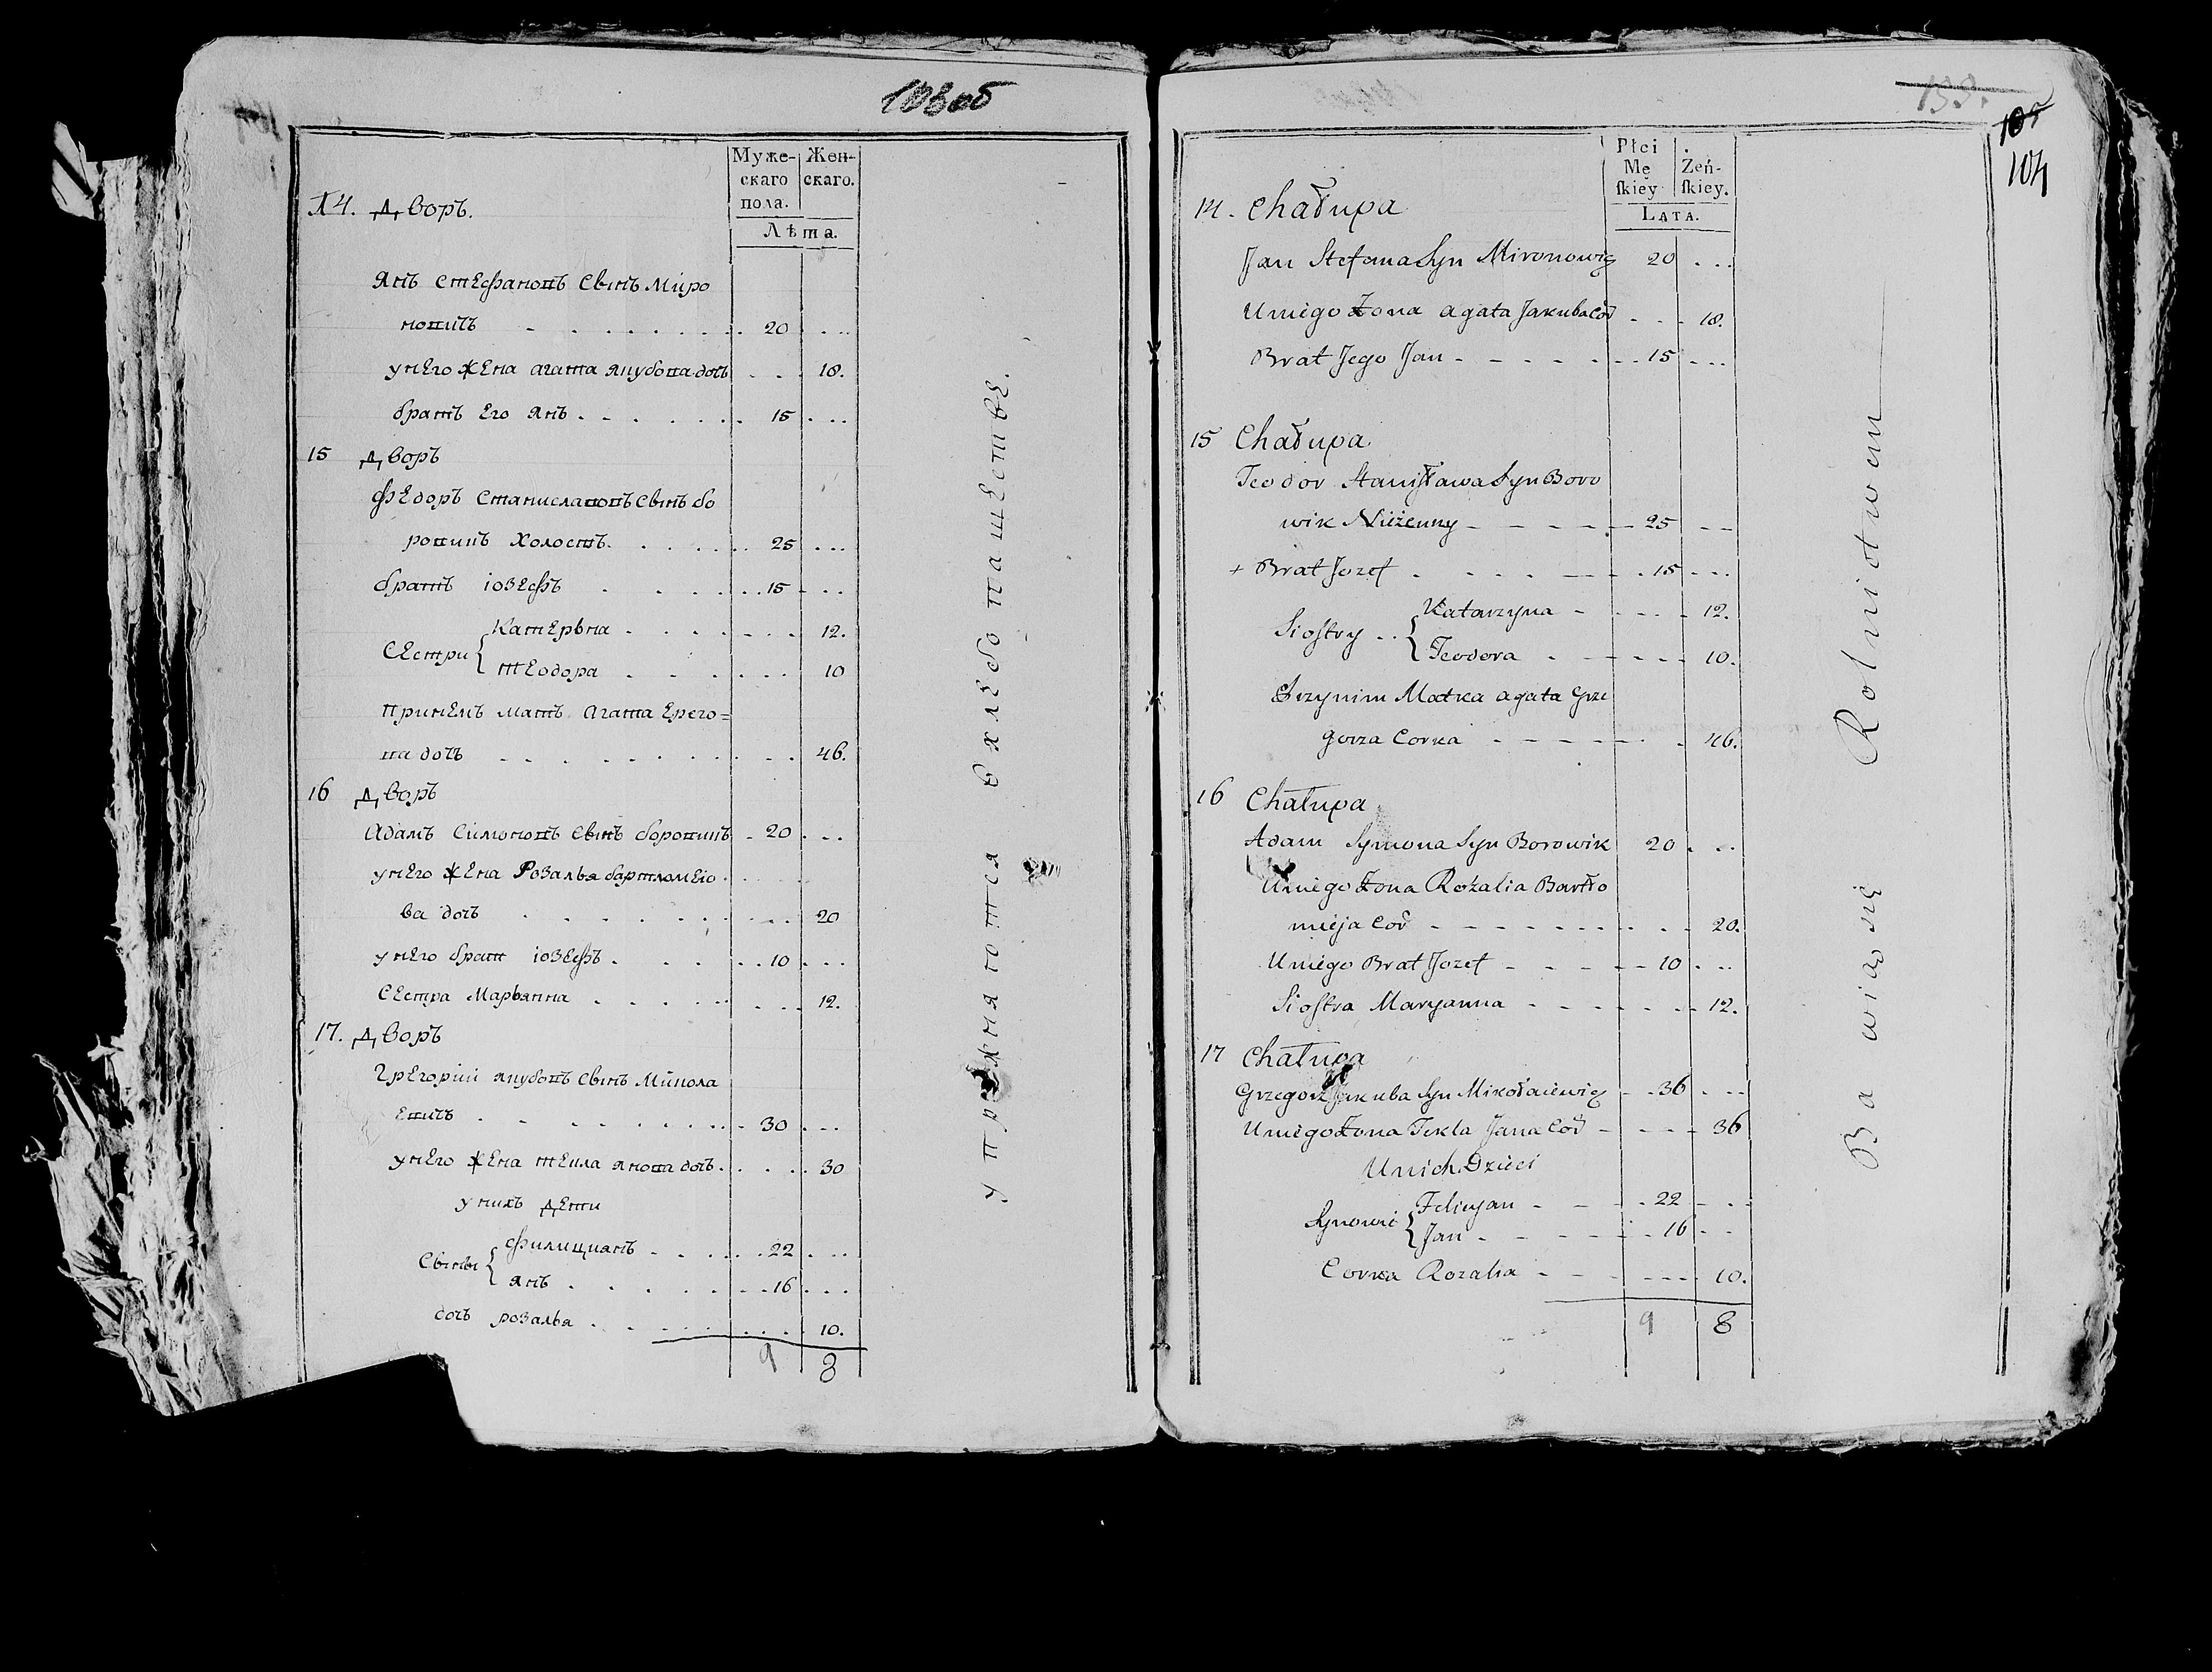 103 об
Муже-
скаго
пола.
Жен-
скаго.
Лѣта.
14. Дворъ.
Янъ Стефановъ Сынъ Миро
новичъ - . . . . . . . 20 . ...
унего жена агата якубова дочь . . . 18.
братъ его янъ . - . . . . . 15 . ...
15 Дворъ
федоръ Станиславовъ Сынъ бо
ровикъ холостъ. . . . . . 25 ...
братъ іозефъ . . . . . 15 - . .
Сестри { Катерына . . . . . . . 12.
теодора . . . . . . . 10
принемъ мать агата Грего=
ва дочь . . . . . . . . . . 46.
16 Дворъ
Адамъ Симоновъ Сынъ боровикъ - 20 . . .
унего жена Розалья бартломею .
ва дочь . . . . . . . . 20
унего брат іозефъ . . . . . 10 . . .
Сестра Марьянна . . . . . . . . 12.
17. Дворъ
Грегорий якубовъ Сынъ Микола
евичъ . . . . . . . . - 30 ...
унего жена текла янова дочь . . . . 30
у нихъ дети
Сыны { Филициянъ . . . . . 22 . ...
янъ . . . . . . . 16 ...
дочь розалья . . . . . . . . 10.
9 8
упражняются в хлебопашестве.
133.
105
104
Płci
Mę
ſkiey
Żeń-
ſkiey.
Lata.
14. Chałupa
Jan Stefana Syn Mironowicz 20 . ...
Uniego Żona Agata Jakuba Cór - . - 18.
Brat Jego Jan - - - - - . - 15 - ...
15 Chałupa
Teodor Stanisława Syn Boro
wik Nieżenny - - - - - 25 - -
+ Brat Jozef . . . . - - . 15 - ...
Siostry .. { Katarzyna - - - - - 12.
Teodora . - - - - 10.
Przynim Matka Agata Grze
gorza Corka - - - - - . 46.
16 Chałupa
Adam Symona Syn Borowik 20 . ...
Uniego Żona Rozalia Bartło
mieja Cór - - - - - - - . . 20.
Uniego Brat Jozef - - - - 10 . ...
Siostra Maryanna - - - - - - 12.
17 Chałupa
Grzegorz Jakuba Syn Mikołaiewicz - . 36 . ...
Uniego Żona Tekla Jana Cór - - - - 36
Unich Dzieci
Synowie { Felicyan - - - . 22 - . .
Jan - - - - - . 16 - . .
Corka Rozalia - - - - - 10.
9 8
Bawiąo się Rolnictwem